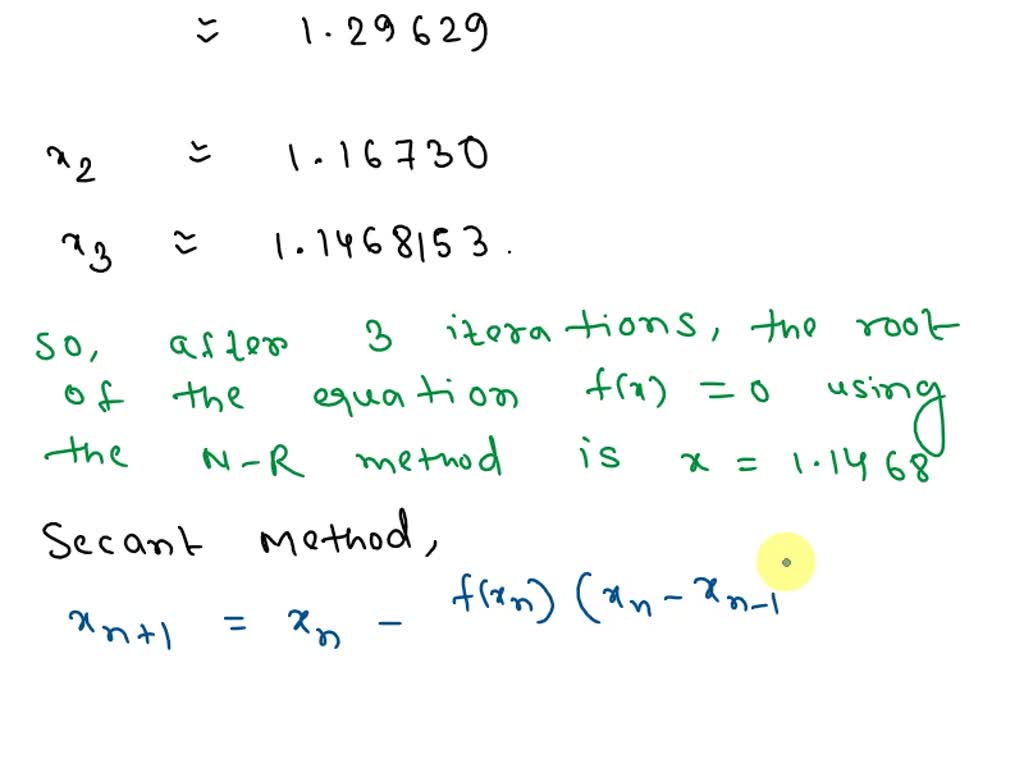 ≈ 1.29629
x₂ ≈ 1.16730
x₃ ≈ 1.1468153.
so, after 3 iterations, the root
of the equation f(x) = 0 using
the N-R method is x = 1.1468
Secant method,
xₙ₊₁ = xₙ - f(xₙ) (xₙ - xₙ₋₁